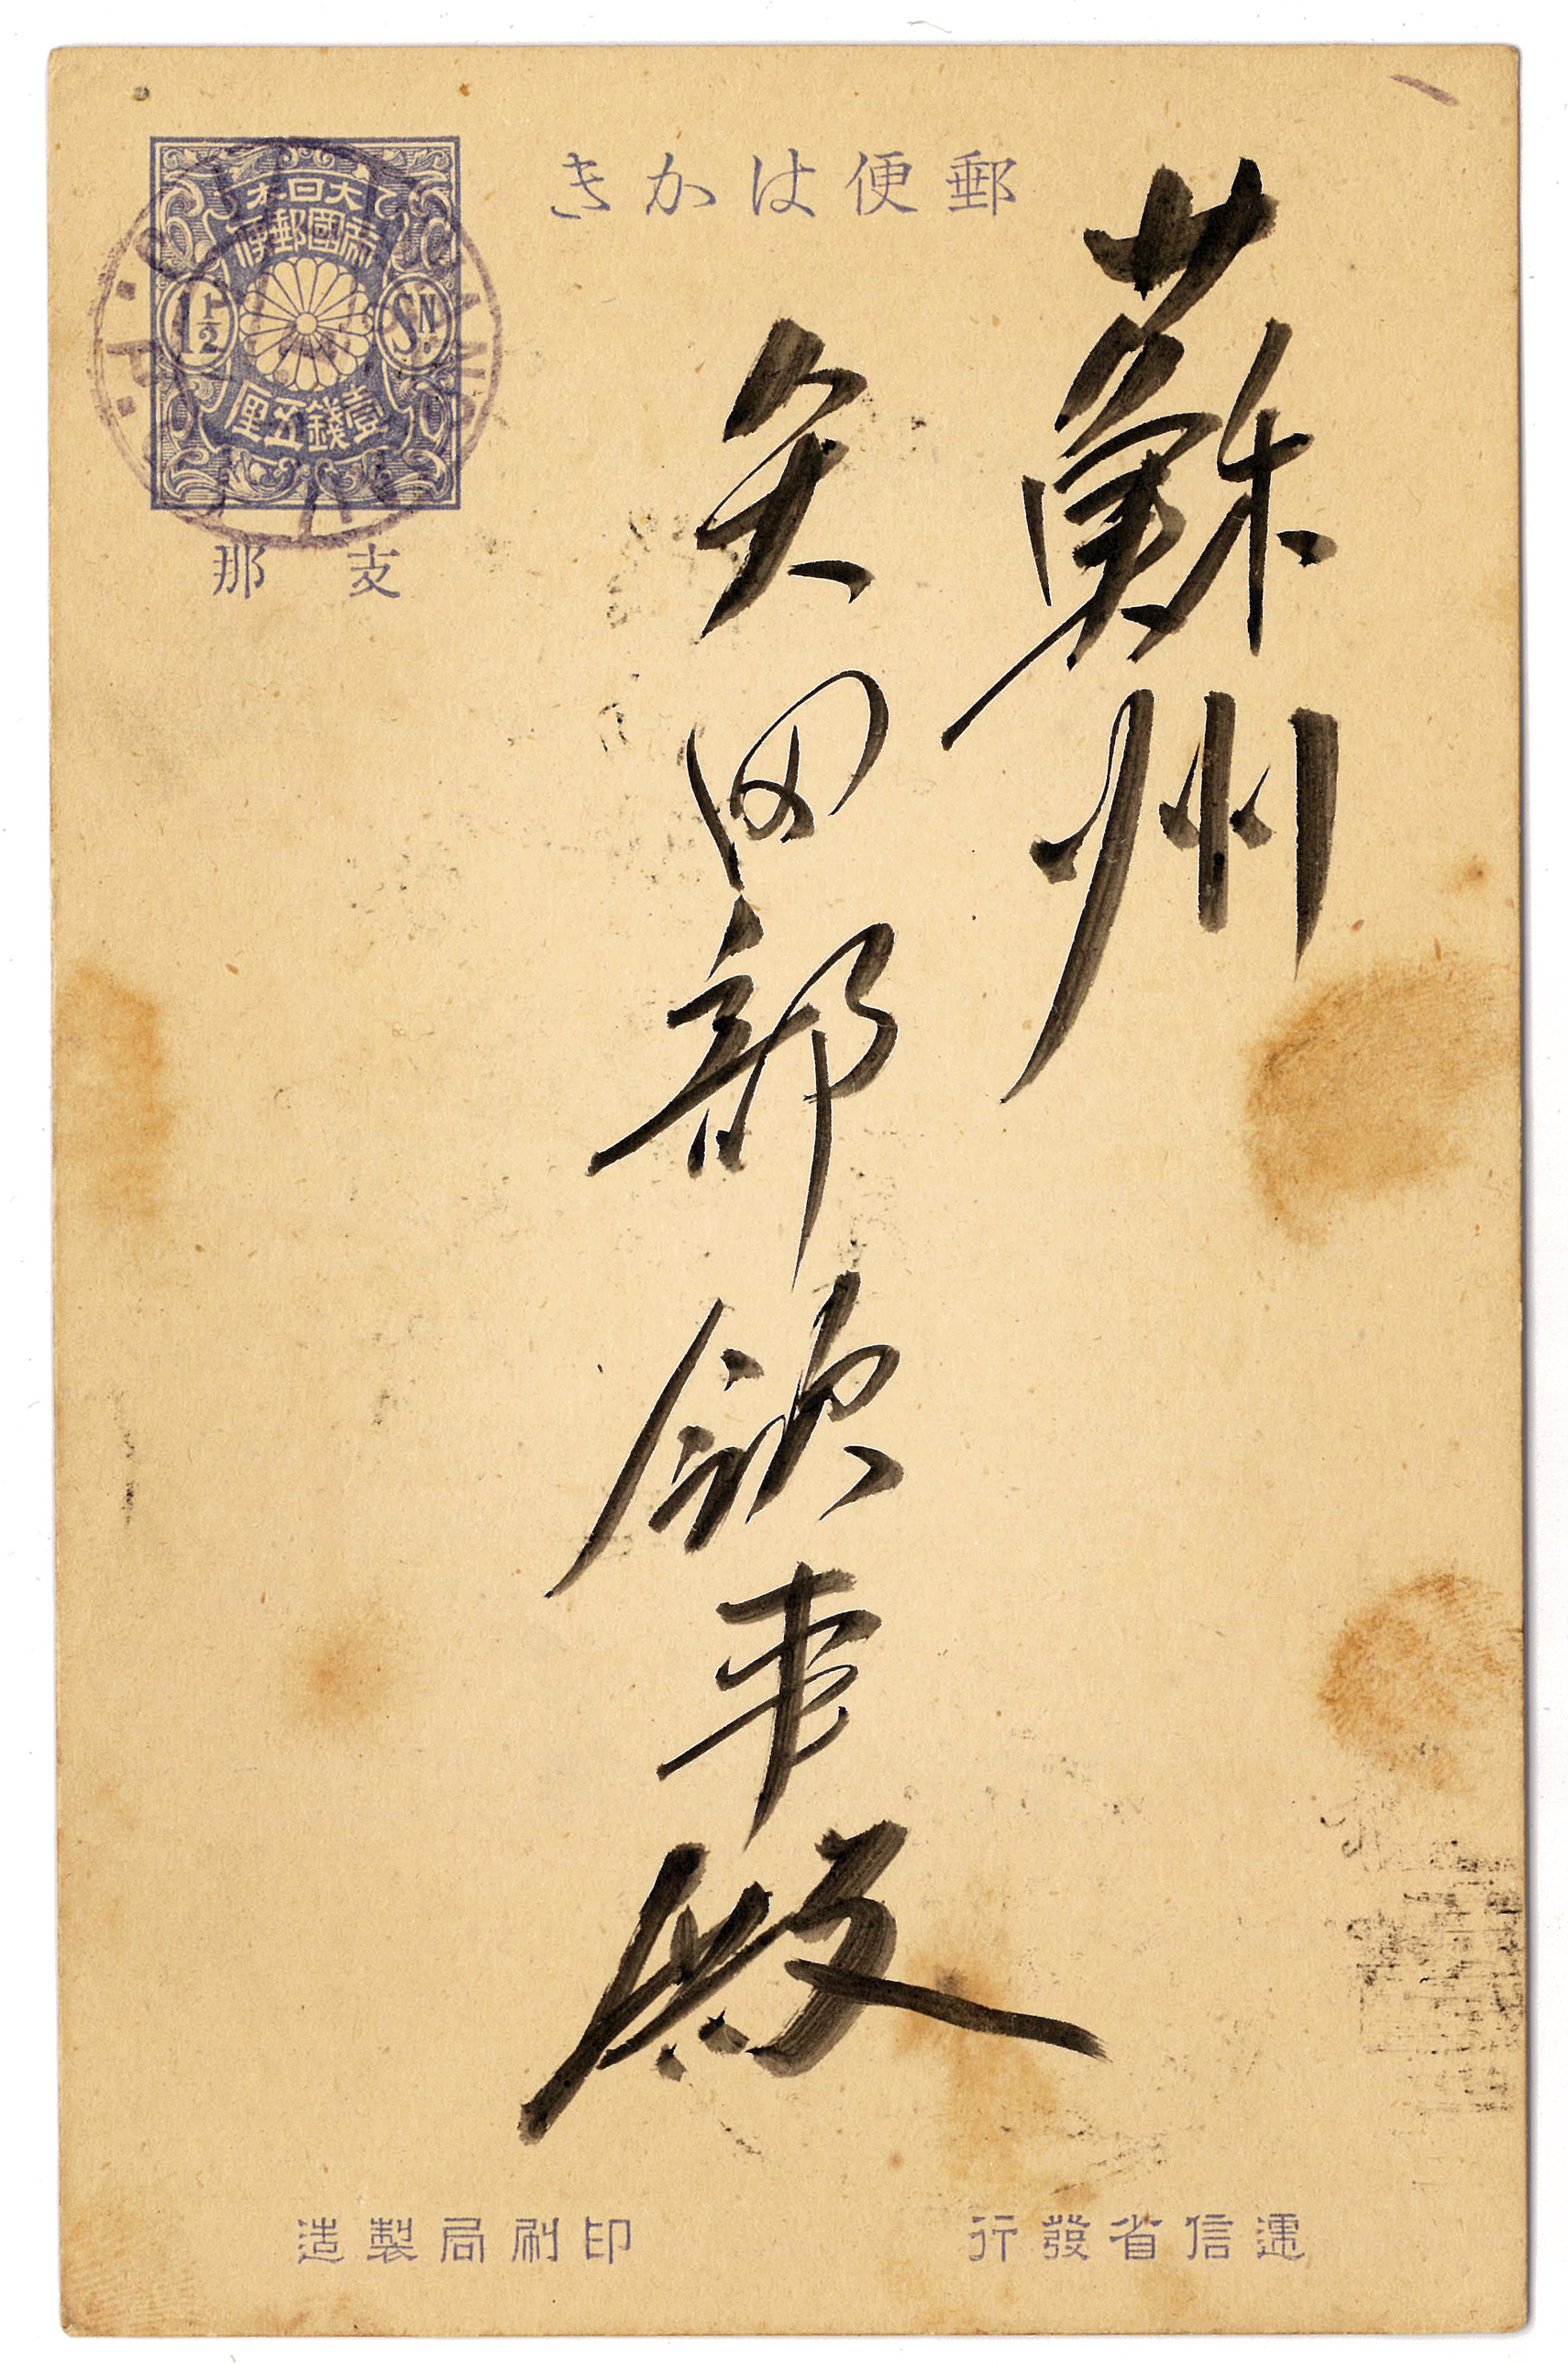 郵便はかき
大日本
帝國郵便
1½ SN
壹錢五厘
支那
蘇州
矢田部領事殿
逓信省發行
印刷局製造